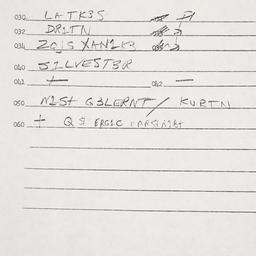 030 LATK3S
032 DR1TN
034 ZOJS XAN1K3
040 S1LVEST3R
041 + 042 —
050 N1S+ G3LERNT / KURTN
060 + QS ERG1C